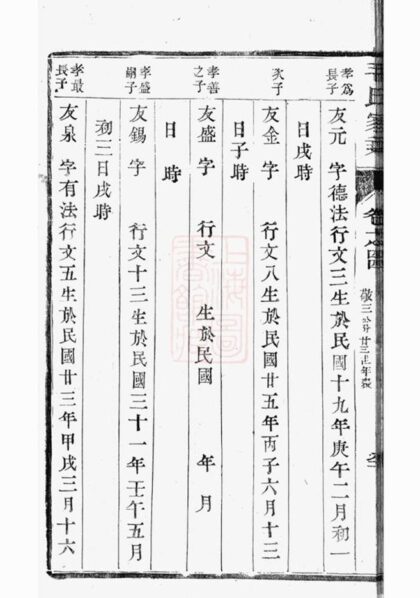 卷之四
孝為長子
友元 字德法行文三生於民國十九年庚午二月初一
日戌時
次子
友金 字 行文八生於民國廿五年丙子六月十三
日子時
孝善之子
友盛 字 行文 生於民國 年 月
日 時
孝盛嗣子
友錫 字 行文十三生於民國三十一年壬午五月
初三日戌時
孝最長子
友泉 字有法行文五生於民國廿三年甲戌三月十六
上海圖書館藏